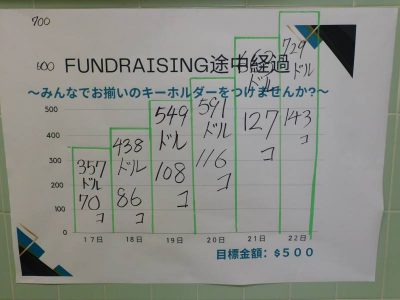 700
600
FUNDRAISING途中経過
〜みんなでお揃いのキーホルダーをつけませんか?〜
500
400
300
200
100
0
357
ドル
70
コ
438
ドル
86
コ
549
ドル
108
コ
591
ドル
116
コ
ドル
127
コ
729
ドル
143
コ
17日
18日
19日
20日
21日
22日
目標金額：$500